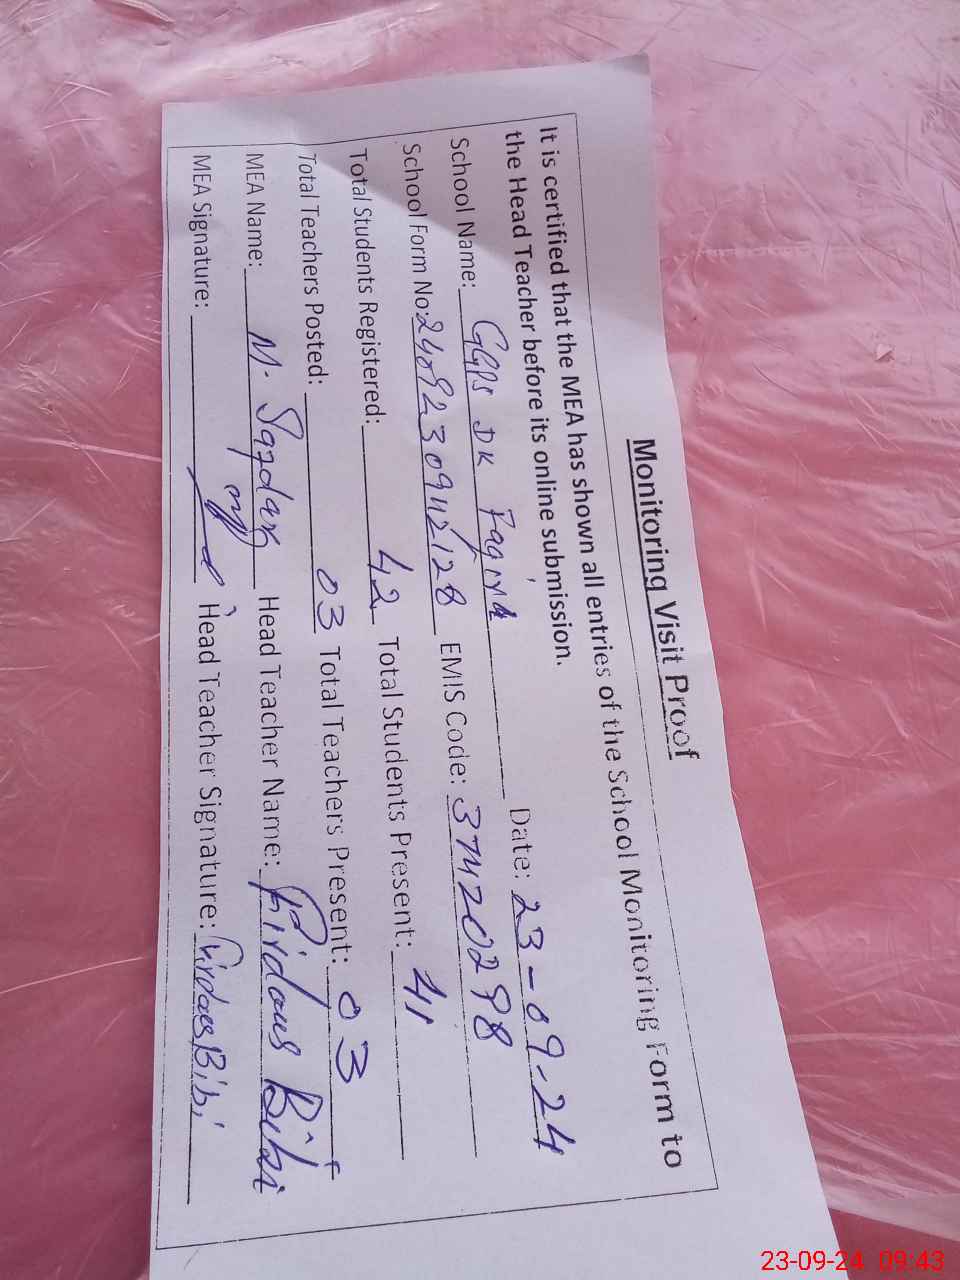 Monitoring Visit Proof
It is certified that the MEA has shown all entries of the School Monitoring Form to
the Head Teacher before its online submission.
School Name: GGPS DK Date: 23-09-24
School Form No: EMIS Code: 37420298
Total Students Registered: 42 Total Students Present: 41
Total Teachers Posted: 03 Total Teachers Present: 03
MEA Name: M. Head Teacher Name: Firdous Bibi
MEA Signature: Head Teacher Signature: Firdaus Bibi
23-09-24 09:43